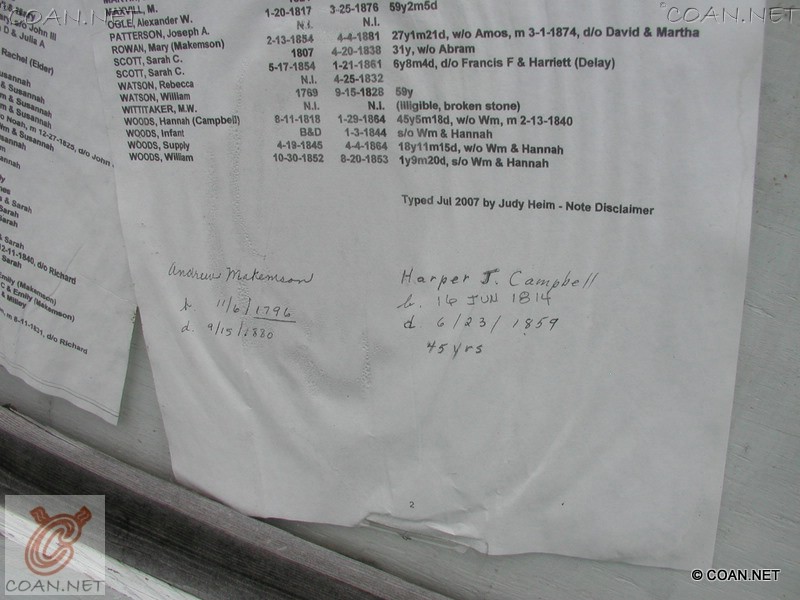 COAN.NET
COAN.NET
MAXVILL, M.
OGLE, Alexander W. 1-20-1817 3-25-1876 59y2m5d
PATTERSON, Joseph A. N.I. N.I.
ROWAN, Mary (Makemson) 2-13-1854 4-4-1881 27y1m21d, w/o Amos, m 3-1-1874, d/o David & Martha
SCOTT, Sarah C. 1807 4-20-1838 31y, w/o Abram
SCOTT, Sarah C. 5-17-1854 1-21-1861 6y8m4d, d/o Francis F & Harriett (Delay)
WATSON, Rebecca N.I. 4-25-1832
WATSON, William 1769 9-15-1828 59y
WITTITAKER, M.W. N.I. N.I. (illigible, broken stone)
WOODS, Hannah (Campbell) 8-11-1818 1-29-1864 45y5m18d, w/o Wm, m 2-13-1840
WOODS, Infant B&D 1-3-1844 s/o Wm & Hannah
WOODS, Supply 4-19-1845 4-4-1864 18y11m15d, w/o Wm & Hannah
WOODS, William 10-30-1852 8-20-1853 1y9m20d, s/o Wm & Hannah
Typed Jul 2007 by Judy Heim - Note Disclaimer
Andrew Makemson
b 11/6/1796
d. 9/15/1880
Harper J. Campbell
b. 16 JUN 1814
d. 6/23/1859
45 yrs
2
John III
D & Julia A
Rachel (Elder)
Susannah
& Susannah
& Susannah
& Susannah
o Noah, m 12-27-1825, d/o John
Wm & Susannah
& Sarah
Sarah
Sarah
& Sarah
12-11-1840, d/o Richard
Sarah
Emily (Makemson)
C & Emily (Makemson)
& Milley
m 8-11-1831, d/o Richard
COAN.NET
© COAN.NET